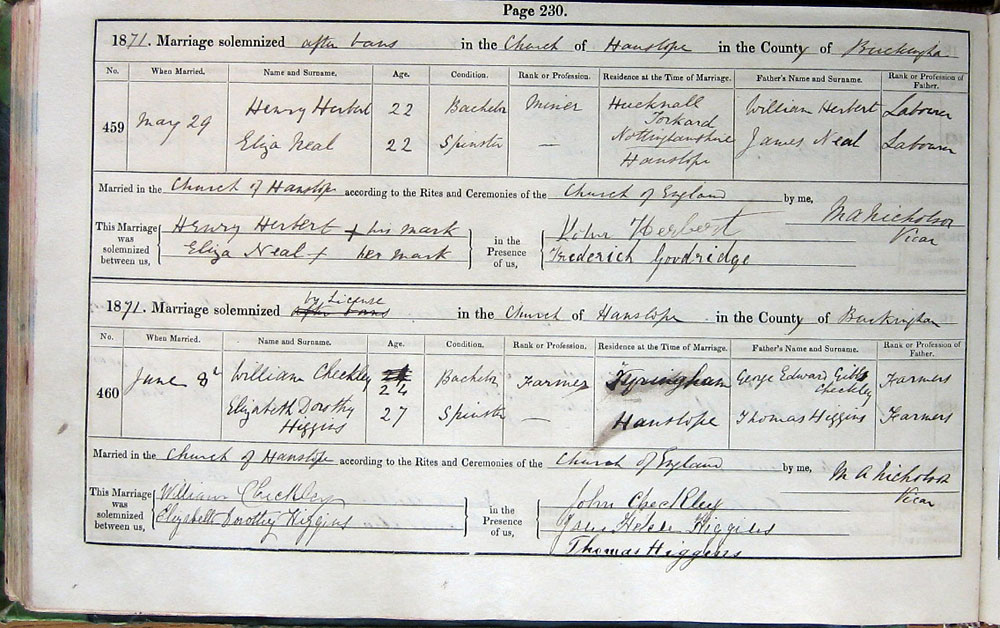 Page 230.
1871. Marriage solemnized after bans in the Church of Hanslope in the County of Buckingham
No. When Married. Name and Surname. Age. Condition. Rank or Profession. Residence at the Time of Marriage. Father's Name and Surname. Rank or Profession of Father.
459 May 29 Henry Herbert 22 Bachelor Miner Hucknall Torkard Nottinghamshire William Herbert Labourer
Eliza Neal 22 Spinster — Hanslope James Neal Labourer
Married in the Church of Hanslope according to the Rites and Ceremonies of the Church of England by me, M A Nicholson
Vicar
This Marriage was solemnized between us, Henry Herbert + his mark
Eliza Neal + her mark
in the Presence of us, Herbert
Frederick Goodridge
1871. Marriage solemnized by License after bans in the Church of Hanslope in the County of Buckingham
No. When Married. Name and Surname. Age. Condition. Rank or Profession. Residence at the Time of Marriage. Father's Name and Surname. Rank or Profession of Father.
460 June 8 William Checkley 24 Bachelor Farmer Tyringham George Edward Gibbs Checkley Farmers
Elizabeth Dorothy Higgins 27 Spinster — Hanslope Thomas Higgins Farmers
Married in the Church of Hanslope according to the Rites and Ceremonies of the Church of England by me, M A Nicholson
Vicar
This Marriage was solemnized between us, William Checkley
Elizabeth Dorothy Higgins
in the Presence of us, John Checkley
Helen Higgins
Thomas Higgens